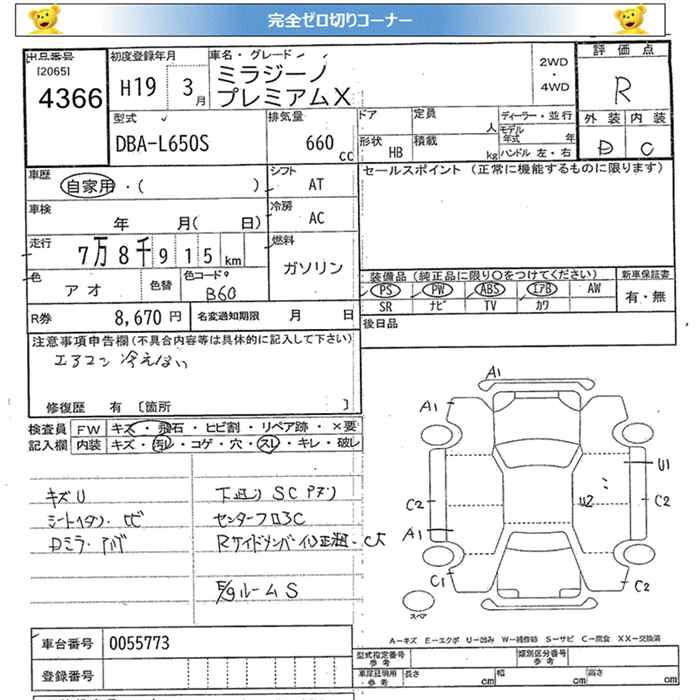 完全ゼロ切りコーナー
出品番号
[2065]
4366
初度登録年月
H19 3月
車名・グレード
ミラジーノ
プレミアムX
2WD
・
4WD
評価点
R
外装 内装
D C
型式
DBA-L650S
排気量
660 cc
ドア
定員
人
形状
HB
積載
kg
ディーラー・並行
モデル年式 年
ハンドル 左・右
車歴
自家用・( )
シフト
AT
車検
年 月( 日)
冷房
AC
走行
7万8千915km
燃料
ガソリン
色
アオ
色替
色コードNo
B60
R券 8,670円
名変通知期限 月 日
セールスポイント (正常に機能するものに限ります)
装備品 (純正品に限り○をつけてください)
新車保証書
PS PW ABS エアB AW
有・無
SR ナビ TV カワ
後日品
注意事項申告欄(不具合内容等は具体的に記入して下さい)
エアコン 冷えない
修復歴 有 〔箇所 〕
検査員
記入欄
FW キズ・飛石・ヒビ割・リペア跡・×要
内装 キズ・汚レ・コゲ・穴・スレ・キレ・破レ
キズU
下廻りSC
センターフロアC
E/gルームS
A1
A1
U1
C2
U2
C2
A1
C1
C2
スペア
A-キズ E-エクボ U-凹み W-補修跡 S-サビ C-腐食 XX-交換済
車台番号 0055773
登録番号
型式指定番号
参考
類別区分番号
参考
車庫証明用
参考
長さ cm 幅 cm 高さ cm